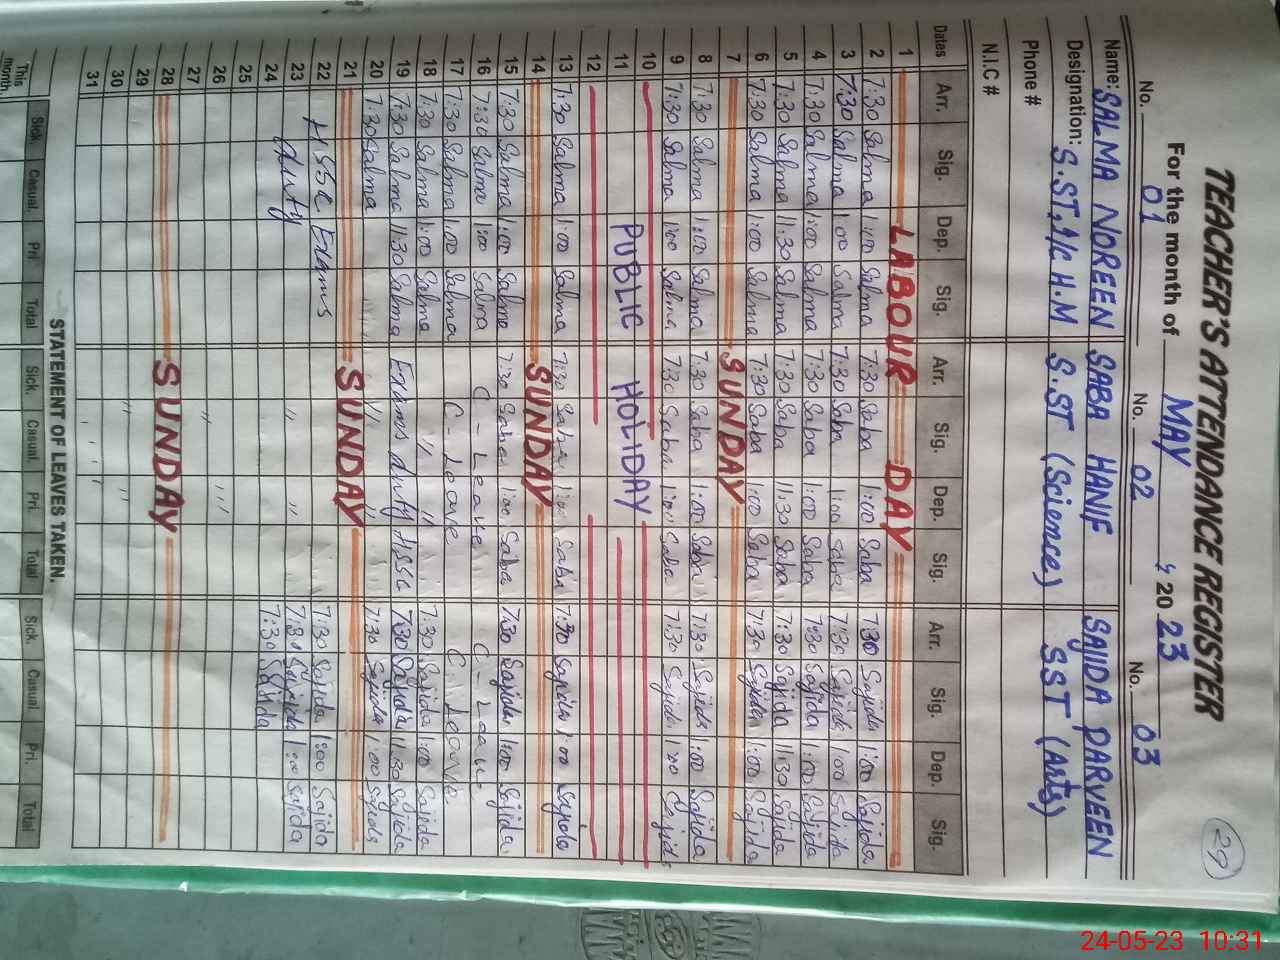 29
TEACHER'S ATTENDANCE REGISTER
For the month of MAY 2023
No. 01 No. 02 No. 03
Name: SALMA NOREEN SABA HANIF SAJIDA PARVEEN
Designation: S.ST, I/c H.M S.ST (Science) SST (Arts)
Phone #
N.I.C #
Dates Arr. Sig. Dep. Sig. Arr. Sig. Dep. Sig. Arr. Sig. Dep. Sig.
1 LABOUR DAY
2 7:30 Salma 1:00 Salma 7:30 Saba 1:00 Saba 7:30 Sajida 1:00 Sajida
3 7:30 Salma 1:00 Salma 7:30 Saba 1:00 Saba 7:30 Sajida 1:00 Sajida
4 7:30 Salma 1:00 Salma 7:30 Saba 1:00 Saba 7:30 Sajida 1:00 Sajida
5 7:30 Salma 11:30 Salma 7:30 Saba 11:30 Saba 7:30 Sajida 11:30 Sajida
6 7:30 Salma 1:00 Salma 7:30 Saba 1:00 Saba 7:30 Sajida 1:00 Sajida
7 SUNDAY
8 7:30 Salma 1:00 Salma 7:30 Saba 1:00 Saba 7:30 Sajida 1:00 Sajida
9 7:30 Salma 1:00 Salma 7:30 Saba 1:00 Saba 7:30 Sajida 1:00 Sajida
10
11 PUBLIC HOLIDAY
12
13 7:30 Salma 1:00 Salma 7:30 Saba 1:00 Saba 7:30 Sajida 1:00 Sajida
14 SUNDAY
15 7:30 Salma 1:00 Salma 7:30 Saba 1:00 Saba 7:30 Sajida 1:00 Sajida
16 7:30 Salma 1:00 Salma C - Leave C - Leave
17 7:30 Salma 1:00 Salma C - Leave C - Leave
18 7:30 Salma 1:00 Salma " " 7:30 Sajida 1:00 Sajida
19 7:30 Salma 11:30 Salma Exams duty HSSC 7:30 Sajida 11:30 Sajida
20 7:30 Salma " " 7:30 Sajida 1:00 Sajida
21 SUNDAY
22 HSSC Exams 7:30 Sajida 1:00 Sajida
23 duty " " 7:30 Sajida 1:00 Sajida
24 7:30 Sajida
25
26 " "
27
28 SUNDAY
29
30 " "
31
STATEMENT OF LEAVES TAKEN.
This month Sick. Casual. Pri Total Sick. Casual. Pri. Total Sick. Casual. Pri. Total
24-05-23 10:31